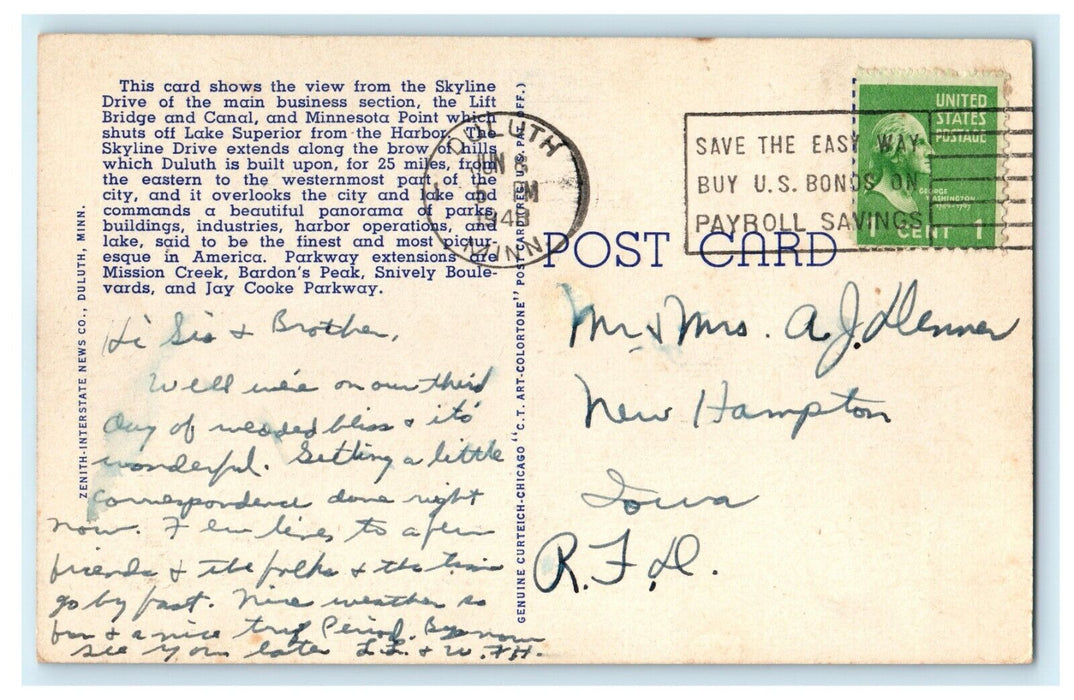 This card shows the view from the Skyline
Drive of the main business section, the Lift
Bridge and Canal, and Minnesota Point which
shuts off Lake Superior from the Harbor. The
Skyline Drive extends along the brow of hills
which Duluth is built upon, for 25 miles, from
the eastern to the westernmost part of the
city, and it overlooks the city and lake and
commands a beautiful panorama of parks,
buildings, industries, harbor operations, and
lake, said to be the finest and most pictur-
esque in America. Parkway extensions are
Mission Creek, Bardon's Peak, Snively Boule-
vards, and Jay Cooke Parkway.
ZENITH-INTERSTATE NEWS CO., DULUTH, MINN.
Hi Sis & Brother,
Well we're on our third
day of wedded bliss & it's
wonderful. Getting a little
correspondence done right
now. A few lines to a few
friends & the folks & the time
go by fast. Nice weather so
far & a nice trip Period. Bye now
see you later L.L. & W.F.H.
GENUINE CURTEICH-CHICAGO "C.T. ART-COLORTONE" POST CARD (REG. U.S. PAT. OFF.)
DULUTH
JUN 8
5 PM
1948
MINN
SAVE THE EASY WAY
BUY U.S. BONDS ON
PAYROLL SAVINGS
UNITED
STATES
POSTAGE
GEORGE
WASHINGTON
1 CENT 1
POST CARD
Mr & Mrs. A. J. Denner
New Hampton
Iowa
R.F.D.